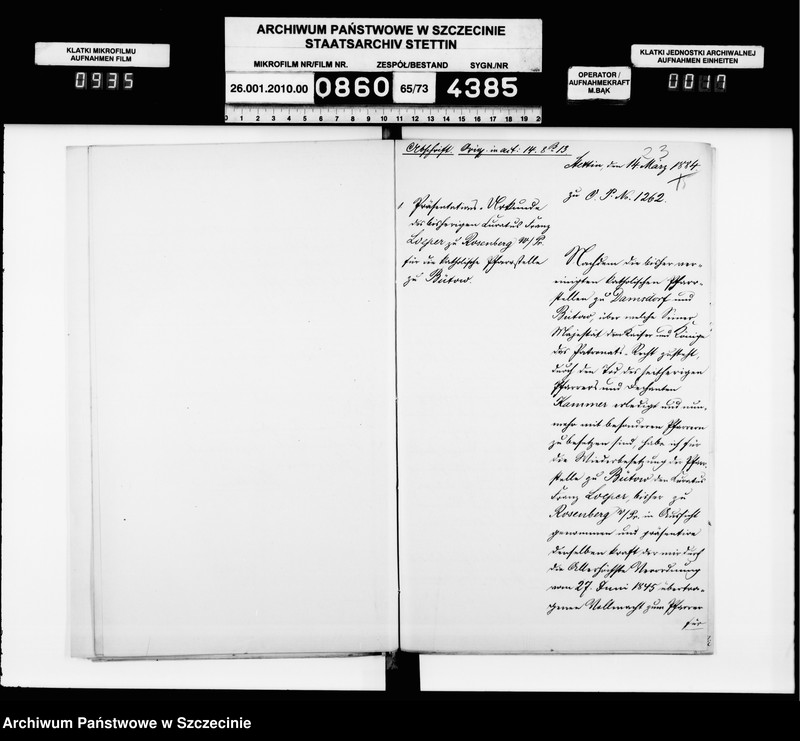 ARCHIWUM PAŃSTWOWE W SZCZECINIE
STAATSARCHIV STETTIN
MIKROFILM NR/FILM NR. ZESPÓŁ/BESTAND SYGN./NR
26.001.2010.00 0860 65/73 4385
KLATKI MIKROFILMU
AUFNAHMEN FILM
0935
OPERATOR /
AUFNAHMEKRAFT
M.BĄK
KLATKI JEDNOSTKI ARCHIWALNEJ
AUFNAHMEN EINHEITEN
0017
0 1 2 3 4 5 6 7 8 9 10 11 12 13 14 15 16 17 18 19 20
23
Abschrift. Orig. in act: 14. 8 13.
Stettin, den 14 März 1884
zu O. P. No. 1262.
1 Präsentations-Urkunde
des bisherigen Curatus Franz
Loeper zu Rosenberg W/Pr.
für die katholische Pfarrstelle
zu Bütow.
Nachdem die bisher ver-
einigten katholischen Pfarr-
stellen zu Damsdorf und
Bütow, über welche Seiner
Majestät dem Kaiser und Könige
das Patronats-Recht zusteht,
durch den Tod des seitherigen
Pfarrers und Dechanten
Kammer erledigt und nun-
mehr mit besonderen Pfarrern
zu besetzen sind, habe ich für
die Wiederbesetzung der Pfarr-
stelle zu Bütow den Curatus
Franz Loeper, bisher zu
Rosenberg W/Pr. in Aussicht
genommen und präsentire
denselben kraft der mir durch
die Allerhöchste Verordnung
vom 27. Juni 1845 übertra-
genen Vollmacht zum Pfarrer
für
Archiwum Państwowe w Szczecinie